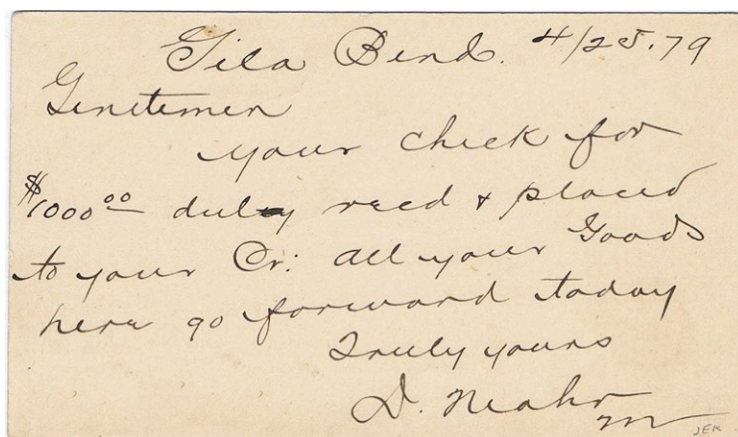 Gila Bend. 4/25.79
Gentlemen
your check for
$1000⁰⁰ duly recd & placed
to your Cr: all your Goods
here go forward today
Truly yours
D. Neahr
JEK